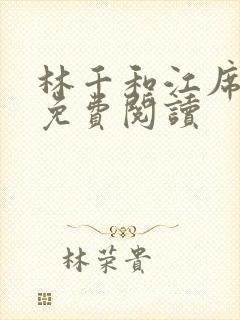 林千和江席
免費閱讀
林荣貴